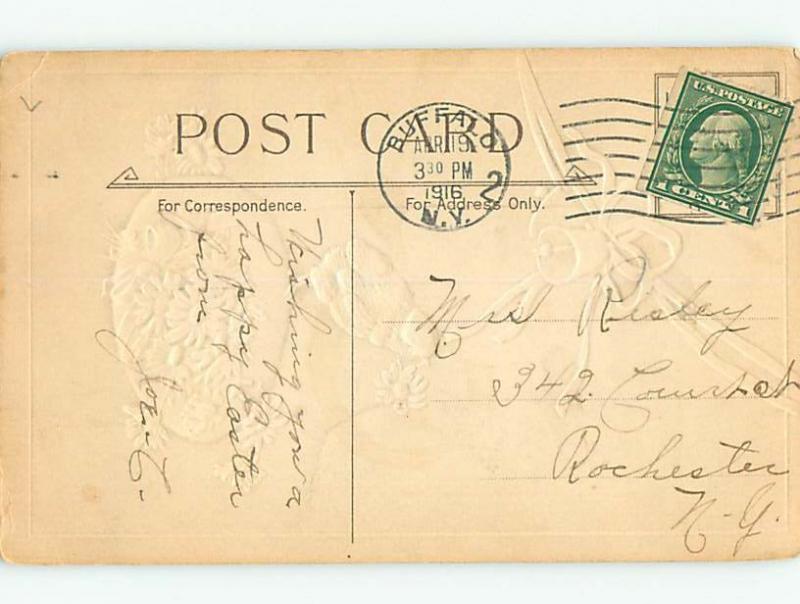 POST CARD
BUFFALO
APR 19
3 30 PM
1916
N.Y.
2
U.S. POSTAGE
1 CENT 1
For Correspondence.
For Address Only.
Wishing you a
happy Easter
from
Mrs Risley
342 Court St
Rochester
N-Y.